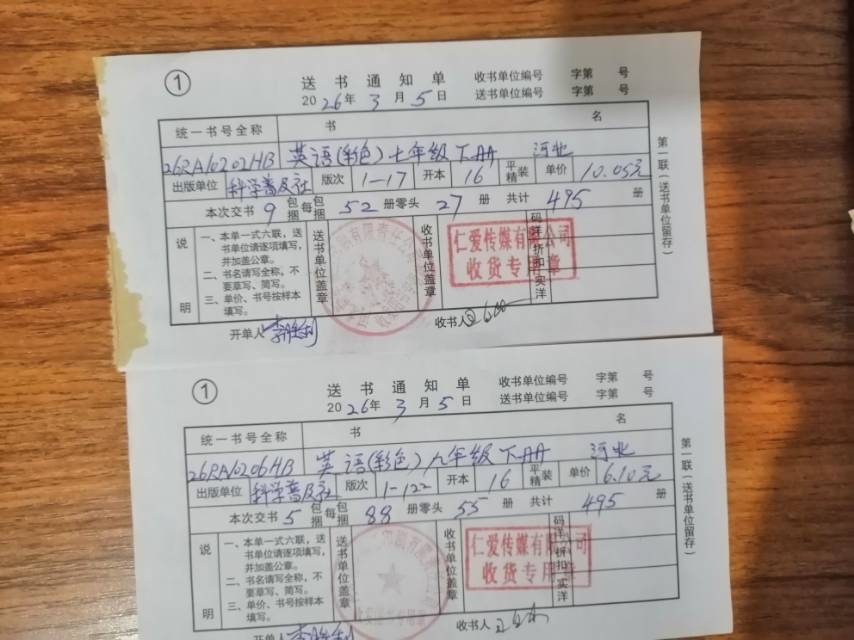 ① 送书通知单 收书单位编号 字第 号
2026年3月5日 送书单位编号 字第 号
统一书号全称 书 名
26RA10202HB 英语(彩色)七年级下册 河北
出版单位 科学普及社 版次 1-17 开本 16 平精装 单价 10.05元
本次交书 9 包捆 每包捆 52 册零头 27 册 共计 495 册
说明
一、本单一式六联,送书单位请逐项填写,并加盖公章。
二、书名请写全称,不要草写、简写。
三、单价、书号按样本填写。
送书单位盖章
收书单位盖章
仁爱传媒有限公司
收货专用章
码洋 折扣 实洋
开单人 李胜利 收书人
第一联(送书单位留存)
① 送书通知单 收书单位编号 字第 号
2026年3月5日 送书单位编号 字第 号
统一书号全称 书 名
26RA10206HB 英语(彩色)九年级下册 河北
出版单位 科学普及社 版次 1-122 开本 16 平精装 单价 6.10元
本次交书 5 包捆 每包捆 88 册零头 55 册 共计 495 册
说明
一、本单一式六联,送书单位请逐项填写,并加盖公章。
二、书名请写全称,不要草写、简写。
三、单价、书号按样本填写。
送书单位盖章
收书单位盖章
仁爱传媒有限公司
收货专用章
码洋 折扣 实洋
开单人 李胜利 收书人
第一联(送书单位留存)